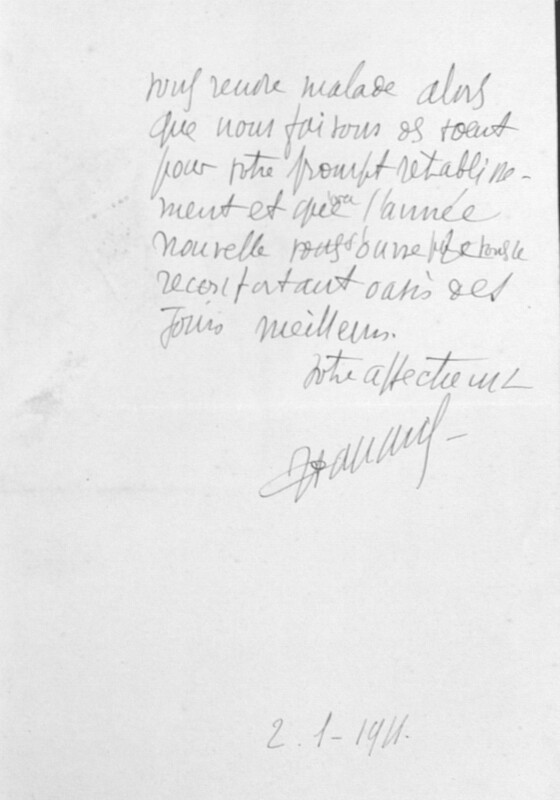 vous rendre malade alors
que nous faisons des voeux
pour votre prompt rétablisse-
ment et que l'année
nouvelle s'ouvre
reconfortant oasis des
jours meilleurs.
Votre affectueux
2.1-1911.